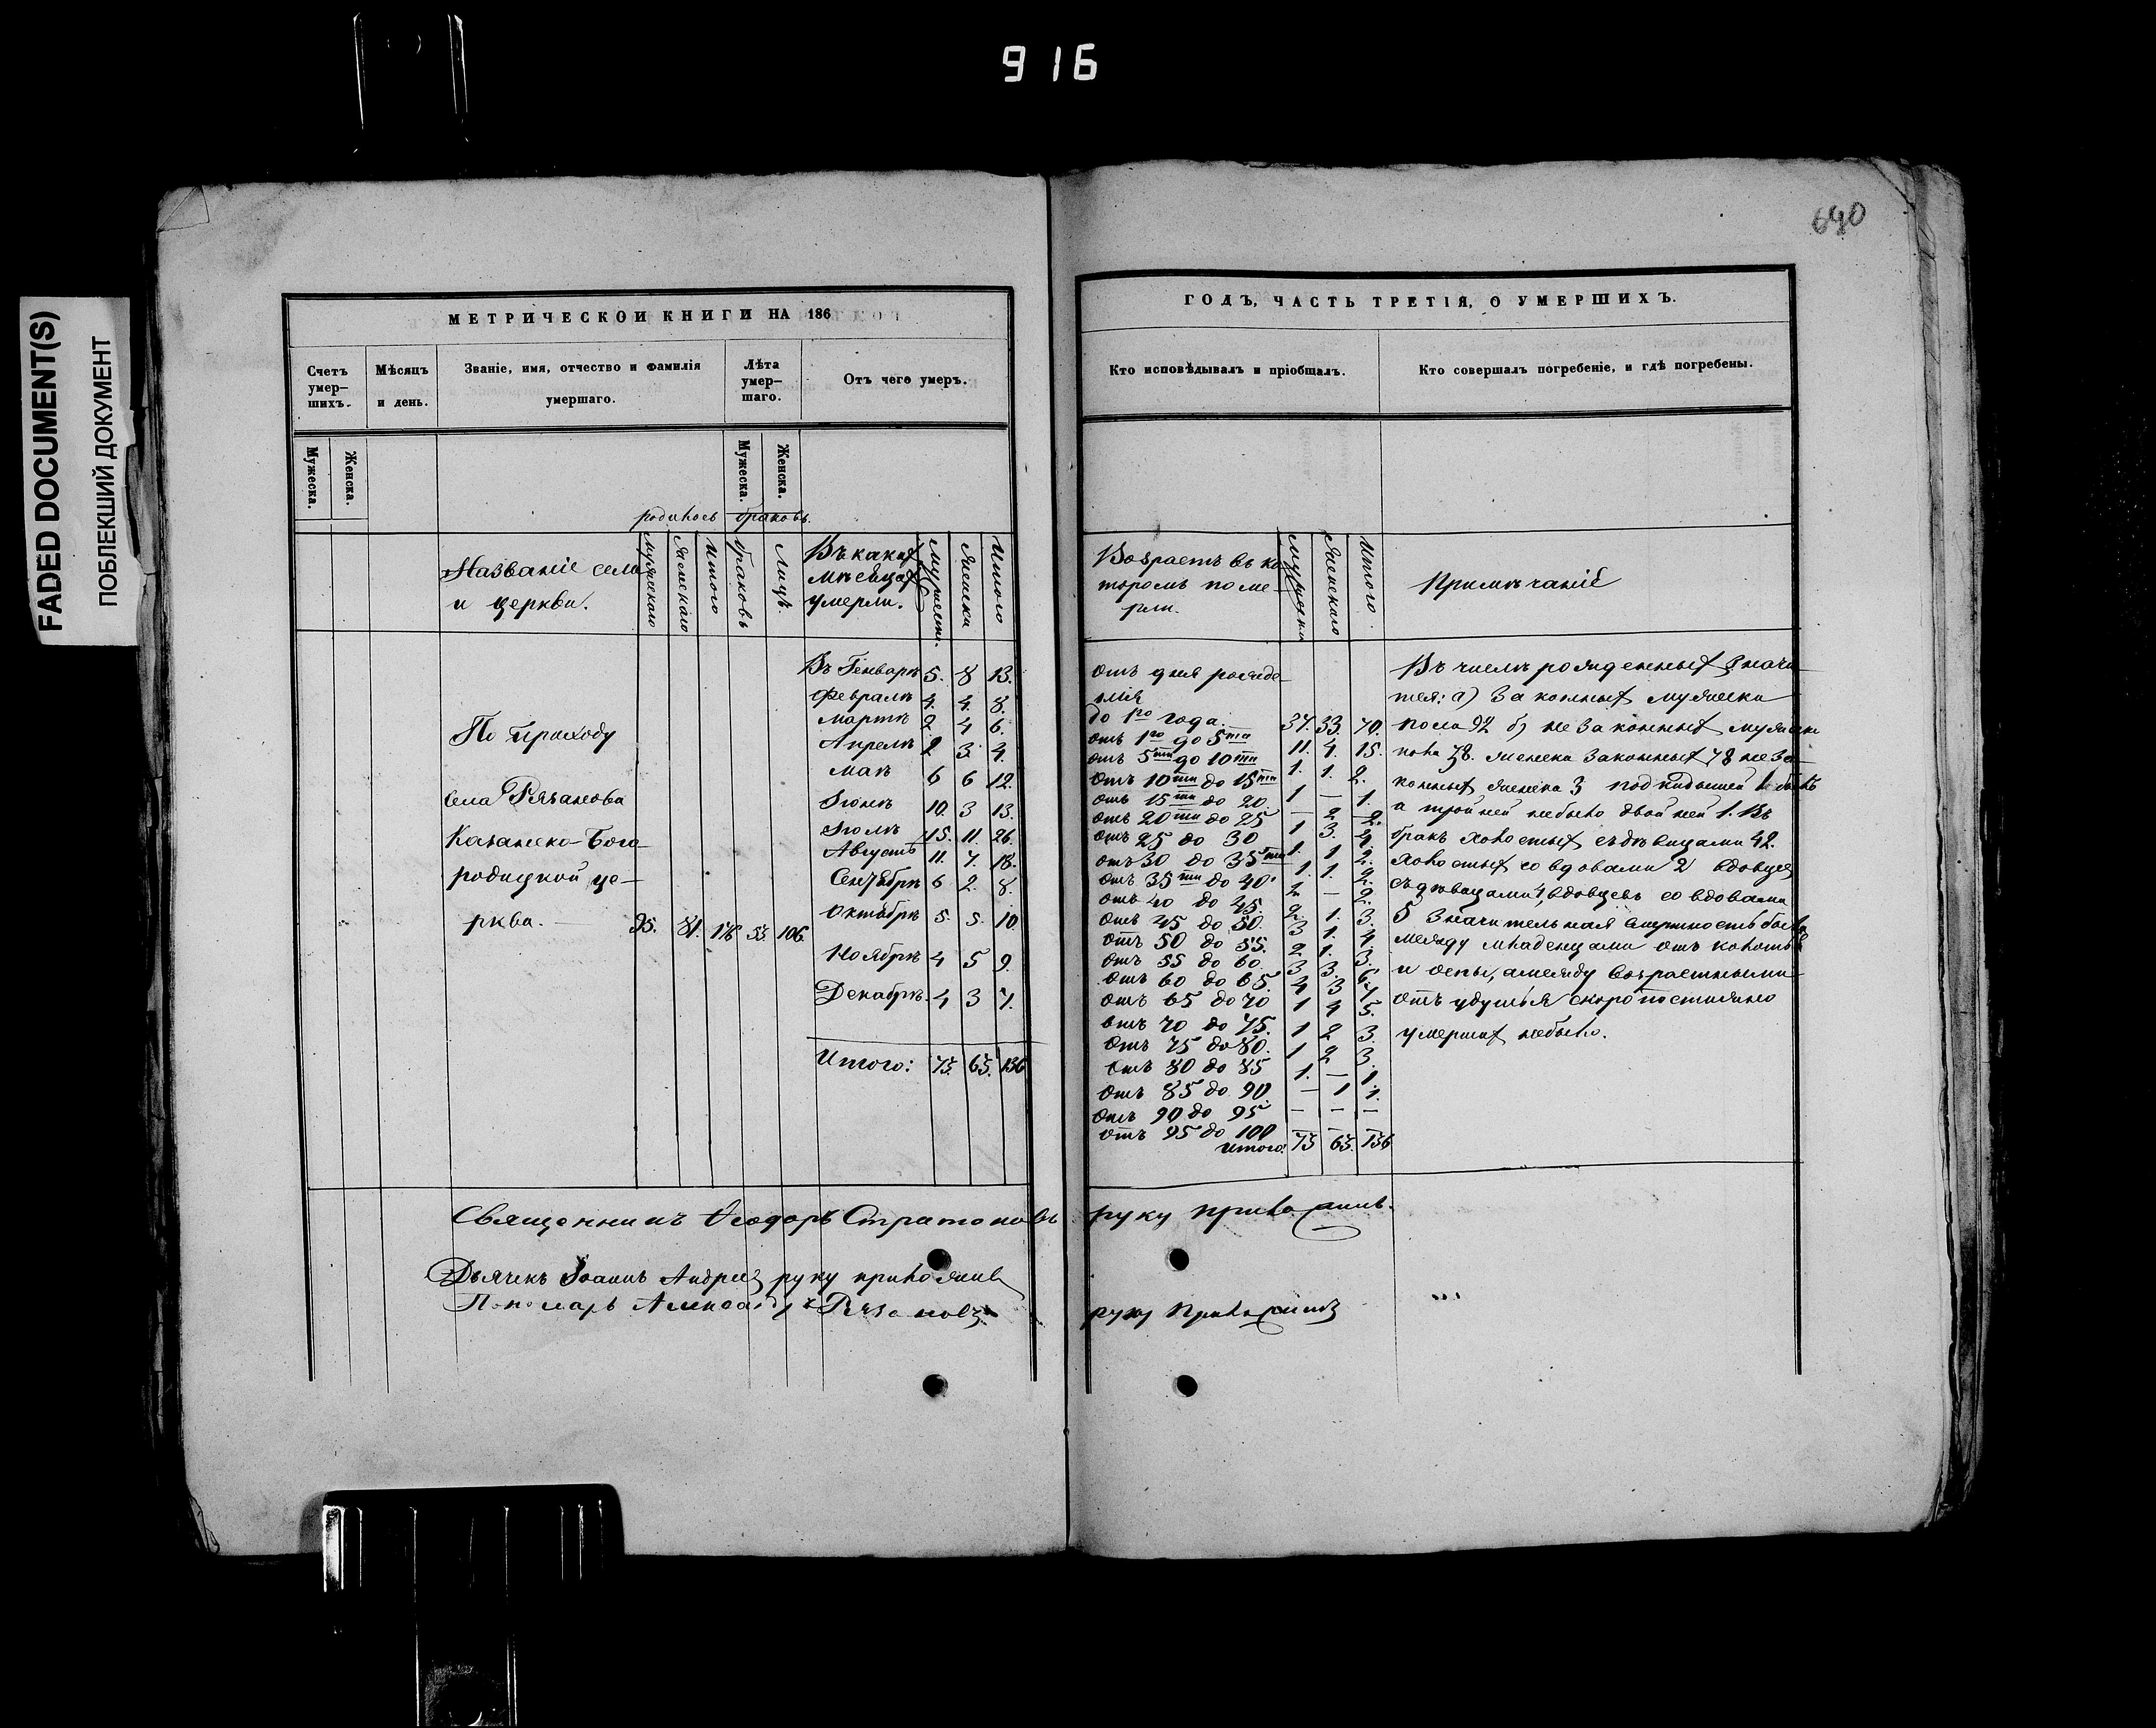 916
690
FADED DOCUMENT(S)
ПОБЛЕКШИЙ ДОКУМЕНТ
МЕТРИЧЕСКОЙ КНИГИ НА 186
Счетъ умер-шихъ.
Мѣсяцъ и день.
Званіе, имя, отчество и фамилія умершаго.
Лѣта умер-шаго.
Отъ чего умеръ.
Мужеска. Женска.
Мужеска. Женска.
родилось браковъ.
Названіе села
и церкви.
мужескаго
женскаго
итого
браковъ
лицъ.
Въ какихъ
мѣсяцахъ
умерли.
женска
Итого
Въ Генварѣ 5. 8 13.
Февралѣ 4. 4. 8.
Мартѣ 2. 4 6.
По приходу
Апрелѣ
маѣ 6 6 12.
села Рязанова
Іюнѣ 10. 3 13.
Казанско-Бого-
Іюлѣ 15. 11. 26.
Августѣ 11. 7. 18.
родицкой це-
Сентябрѣ 6 2. 8.
рква. 95. 81. 176 53. 106.
Октябрѣ 5. 5. 10.
Ноябрѣ 4 5 9.
Декабрѣ. 4 3 7.
Итого: 73. 63. 136
Священникъ Ѳеодоръ Стратоновъ руку приложилъ.
Дьячекъ Іоаннъ Андреевъ руку приложилъ
Пономарь Александръ Рязановъ руку приложилъ
ГОДЪ, ЧАСТЬ ТРЕТІЯ, О УМЕРШИХЪ.
Кто исповѣдывалъ и пріобщалъ.
Кто совершалъ погребеніе, и гдѣ погребены.
Возрастъ въ ко-
торомъ поме-
рли.
женскаго
Итого.
Примѣчаніе
отъ дня рожде-
нія
до 1го года. 37. 33. 70.
отъ 1го до 5ти 11. 4. 15.
отъ 5ти до 10ти 1. 1. 2.
отъ 10ти до 15ти 1 — 1.
отъ 15ти до 20. — 2 2.
отъ 20ти до 25 1 3. 4.
отъ 25 до 30 1. 1 2.
отъ 30 до 35ти 1. 1. 2.
отъ 35ти до 40. 2 — 2.
отъ 40 до 45. 2. 1. 3.
отъ 45 до 50. 3 1. 4.
отъ 50 до 55. 2 1. 3.
отъ 55 до 60. 3 3. 6.
отъ 60 до 65. 4 3 7.
отъ 65 до 70 1 4 5.
отъ 70 до 75. 1 2 3.
отъ 75 до 80. 1 2 3.
отъ 80 до 85 1. — 1.
отъ 85 до 90. — 1 1.
отъ 90 до 95 — — —
отъ 95 до 100 — — —
Итого: 73 63. 136
Въ числѣ рожденныхъ значи-
тся: а) законныхъ мужеска
пола 92 б) не законныхъ мужеска
пола 3. женска законныхъ 78 не за-
конныхъ женска 3 подкидышей не было
а тройней небыло двойней 1. Въ
бракъ холостыхъ съ дѣвицами 42.
холостыхъ со вдовами 2 вдовцевъ
съ дѣвицами 4, вдовцевъ со вдовами
5 Значительная смертность была
между младенцами отъ
и оспы, а между возрастными
отъ удушья скоропостижно
умершихъ небыло.